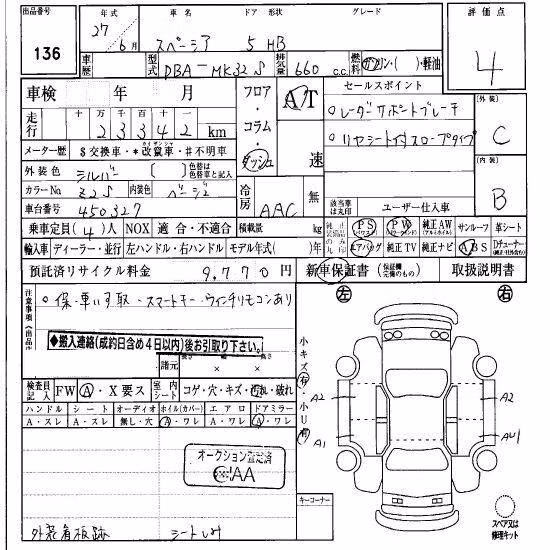 出品番号 年式 車名 ドア 形状 グレード 評価点
136 27年 6月 スペーシア 5 HB 4
車歴 型式 DBA-MK32S 排気量 660 c.c. 燃料 ガソリン・( )・軽油
車検 年 月 フロア・コラム・ダッシュ AT 速 セールスポイント 外装 C
・レーダーサポートブレーキ
走行 十万千百十一 23342 km ・リヤシート付スロープタイプ
メーター歴 $交換車・*改竄車・#不明車
外装色 シルバー ( ) 色替は色替車と記入 内装 B
カラーNo. Z2S 内装色 ベージュ 冷房 AAC 無 該当車は丸印 ユーザー仕入車
車台番号 450327
乗車定員 (4)人 NOX 適合・不適合 積載量 kg PS PW 純正AW サンルーフ 革シート
輸入車 ディーラー・並行 左ハンドル・右ハンドル モデル年式( )年 エアバッグ 純正TV 純正ナビ ABS
預託済リサイクル料金 9,770円 新車保証書 取扱説明書
注意事項 ・保・車い引取・スマートキー・ウィンチリモコンあり 左 右
◆搬入連絡(成約日含め4日以内)後お引取り下さい。
諸元 長さ 幅 高さ × × 小キズ有・小U有
検査員記入 FW A・X要ス 室内シート コゲ・穴・キズ・汚れ・破れ A2 A2
ハンドル シート オーディオ ホイル(カバー) エアロ ドアミラー
A・スレ A・スレ 無し・穴 A・ワレ A・ワレ A・ワレ A1 AU1
オークション査定済
AA
キーコーナー
外装看板跡 シートしみ スペア又は修理キット